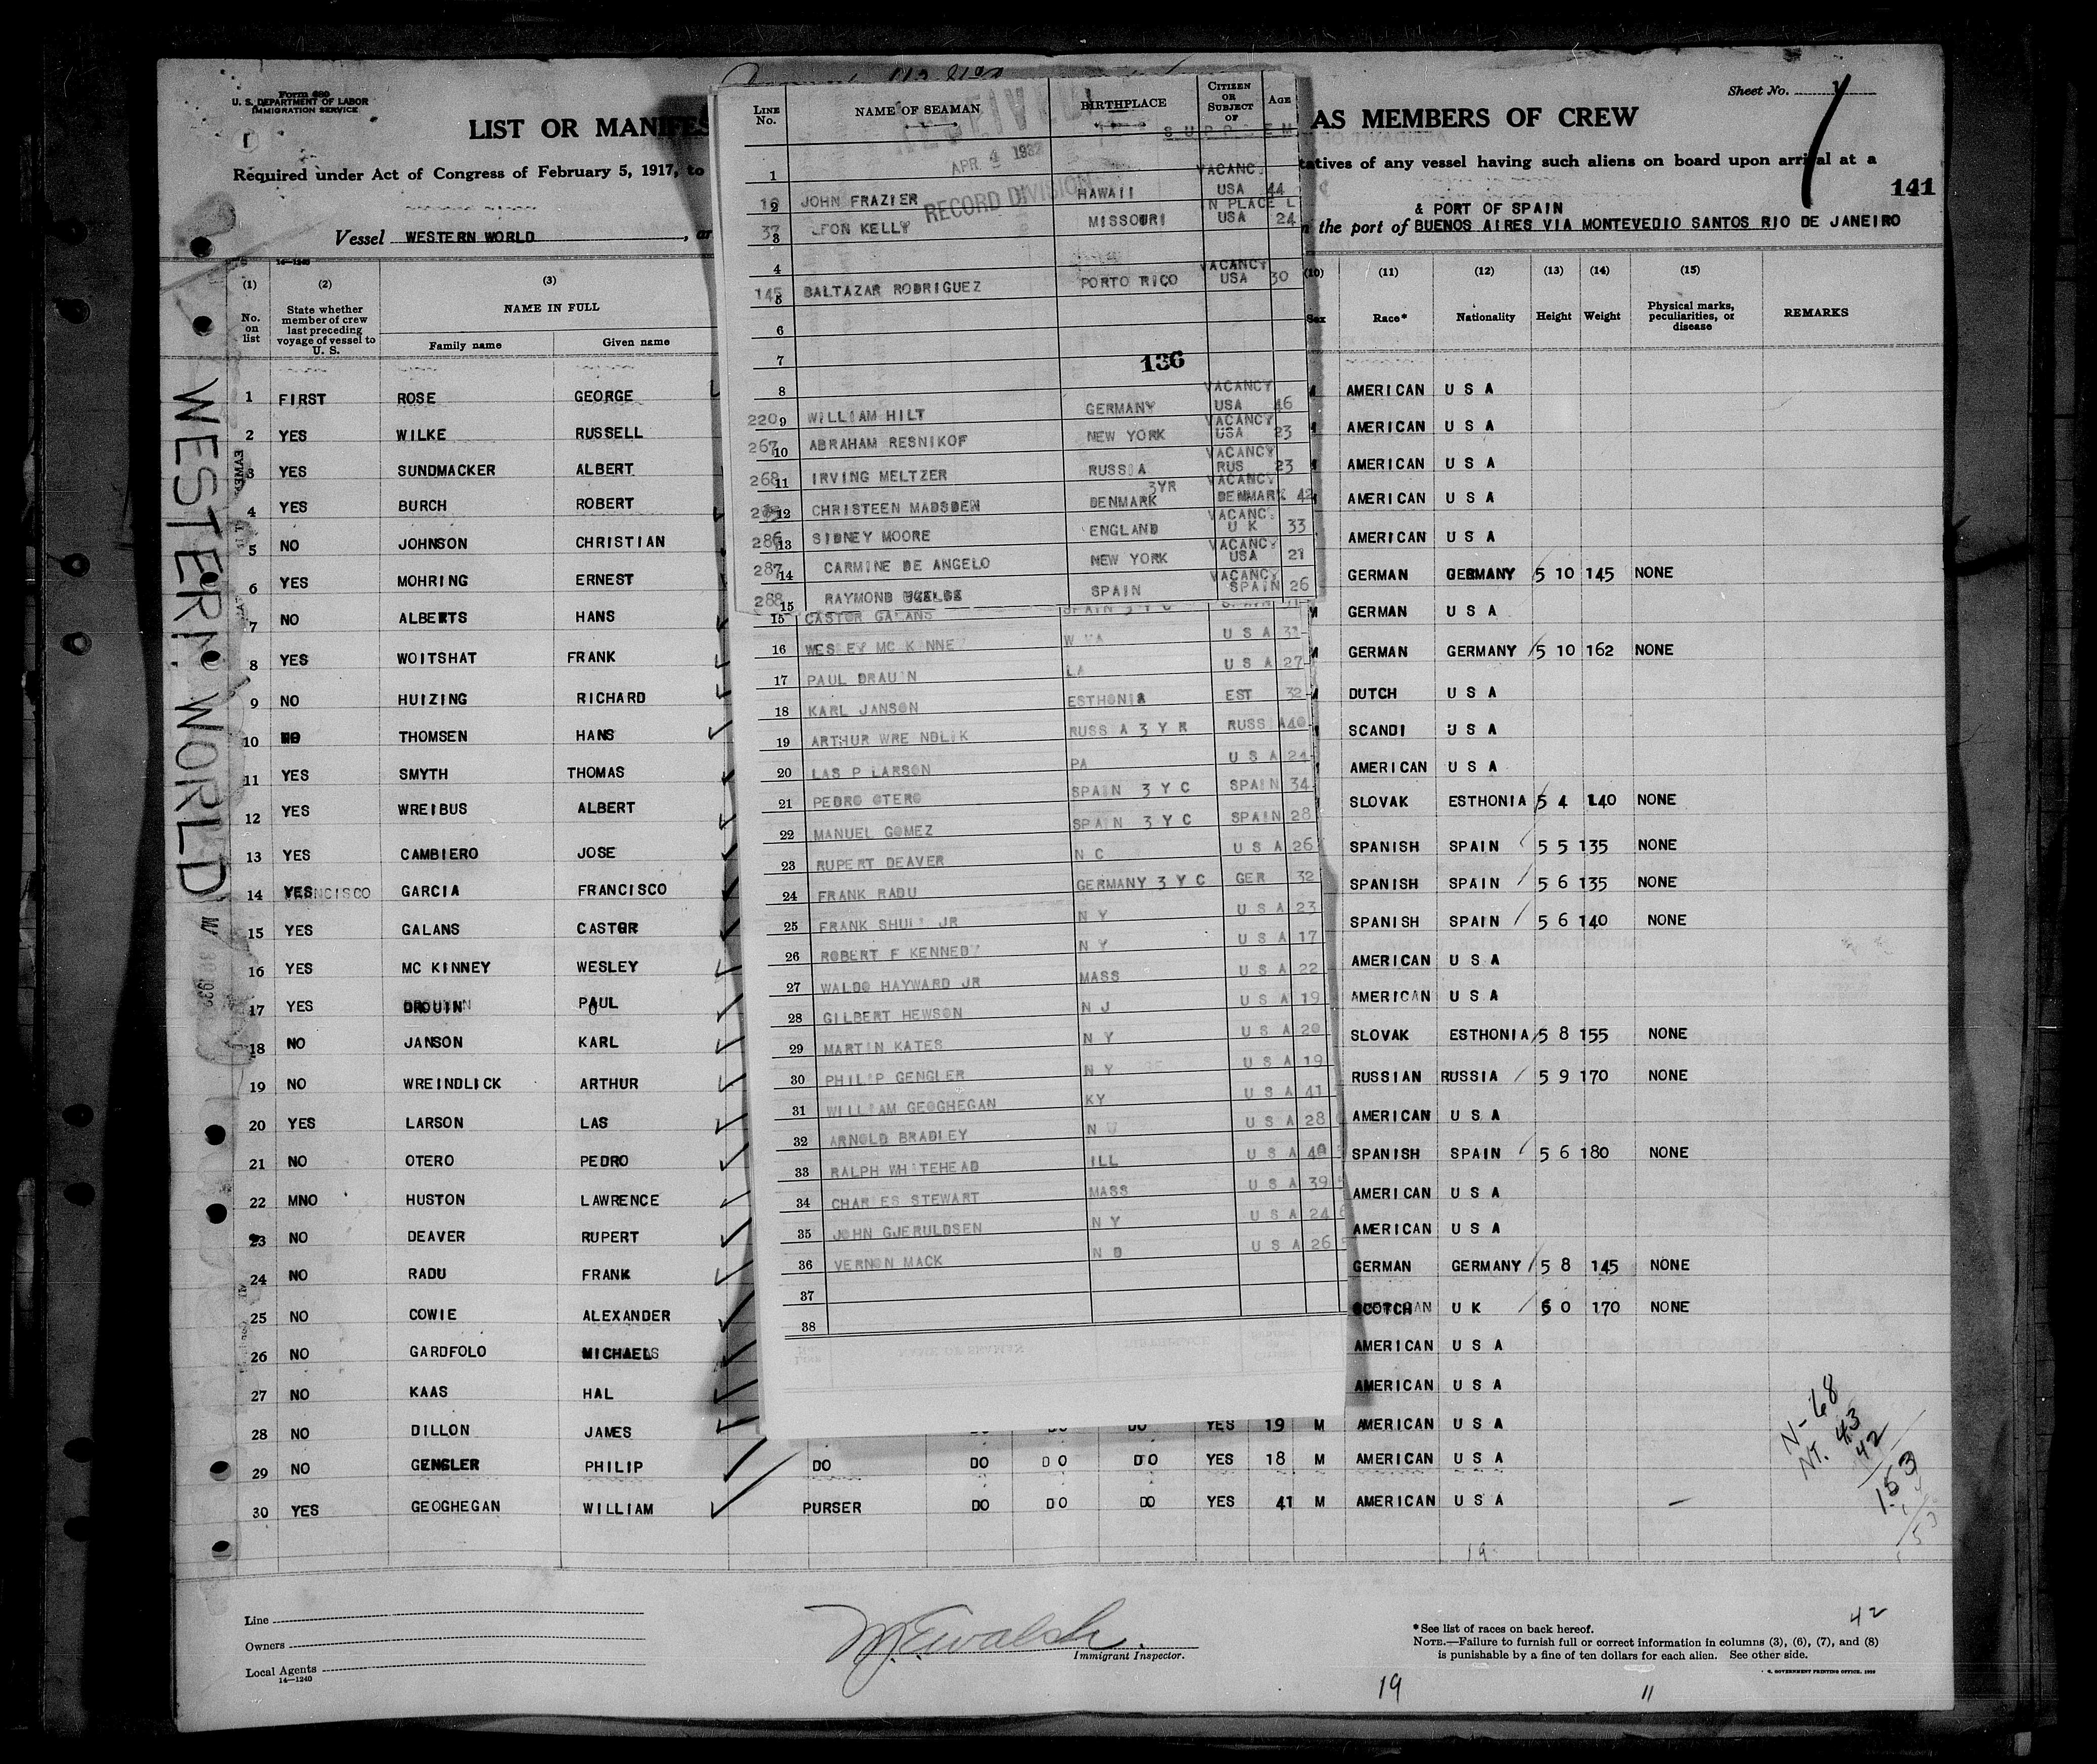 Form 680
U. S. DEPARTMENT OF LABOR
IMMIGRATION SERVICE
Sheet No.
LIST OR MANIFES
AS MEMBERS OF CREW
Required under Act of Congress of February 5, 1917, to
tatives of any vessel having such aliens on board upon arrival at a
141
& PORT OF SPAIN
Vessel WESTERN WORLD, ar
the port of BUENOS AIRES VIA MONTEVEDIO SANTOS RIO DE JANEIRO
WESTERN WORLD
14-1240
(1) (2) (3)
No. on list
State whether member of crew last preceding voyage of vessel to U. S.
NAME IN FULL
Family name Given name
(10) (11) (12) (13) (14) (15)
Sex Race* Nationality Height Weight Physical marks, peculiarities, or disease REMARKS
1 FIRST ROSE GEORGE AMERICAN U S A
2 YES WILKE RUSSELL AMERICAN U S A
3 YES SUNDMACKER ALBERT AMERICAN U S A
4 YES BURCH ROBERT AMERICAN U S A
5 NO JOHNSON CHRISTIAN AMERICAN U S A
6 YES MOHRING ERNEST GERMAN GERMANY 5 10 145 NONE
7 NO ALBERTS HANS M GERMAN U S A
8 YES WOITSHAT FRANK M GERMAN GERMANY 5 10 162 NONE
9 NO HUIZING RICHARD DUTCH U S A
10 NO THOMSEN HANS SCANDI U S A
11 YES SMYTH THOMAS AMERICAN U S A
12 YES WREIBUS ALBERT SLOVAK ESTHONIA 5 4 140 NONE
13 YES CAMBIERO JOSE SPANISH SPAIN 5 5 135 NONE
14 YES GARCIA FRANCISCO SPANISH SPAIN 5 6 135 NONE
15 YES GALANS CASTOR SPANISH SPAIN 5 6 140 NONE
16 YES MC KINNEY WESLEY AMERICAN U S A
17 YES DROUIN PAUL AMERICAN U S A
18 NO JANSON KARL SLOVAK ESTHONIA 5 8 155 NONE
19 NO WREINDLICK ARTHUR RUSSIAN RUSSIA 5 9 170 NONE
20 YES LARSON LAS AMERICAN U S A
21 NO OTERO PEDRO SPANISH SPAIN 5 6 180 NONE
22 MNO HUSTON LAWRENCE AMERICAN U S A
23 NO DEAVER RUPERT AMERICAN U S A
24 NO RADU FRANK GERMAN GERMANY 5 8 145 NONE
25 NO COWIE ALEXANDER SCOTCH U K 6 0 170 NONE
26 NO GARDFOLO MICHAEL AMERICAN U S A
27 NO KAAS HAL AMERICAN U S A
28 NO DILLON JAMES DO DO YES 19 M AMERICAN U S A
29 NO GENGLER PHILIP DO DO DO DO YES 18 M AMERICAN U S A
30 YES GEOGHEGAN WILLIAM PURSER DO DO DO YES 41 M AMERICAN U S A
LINE No. NAME OF SEAMAN BIRTHPLACE CITIZEN OR SUBJECT OF AGE
SUPPLEM
APR 4 1932
RECORD DIVISION
1 VACANC
2 JOHN FRAZIER HAWAII USA 44
IN PLACE L
37 3 LEON KELLY MISSOURI USA 24
4 VACANCY
145 5 BALTAZAR RODRIGUEZ PORTO RICO USA 30
6
7
136
8 VACANCY
220 9 WILLIAM HILT GERMANY USA 46
VACANCY
267 10 ABRAHAM RESNIKOF NEW YORK USA 23
VACANCY
268 11 IRVING MELTZER RUSSIA RUS 23
3YR VACANCY
12 CHRISTEEN MADSDEN DENMARK DENMARK 42
VACANC
286 13 SIDNEY MOORE ENGLAND U K 33
VACANCY
287 14 CARMINE DE ANGELO NEW YORK USA 21
VACANCY
288 15 RAYMOND SPAIN SPAIN 26
15 CASTOR GALANS SPAIN 3 Y C SPAIN
16 WESLEY MC KINNEY W VA U S A 31
17 PAUL DRAUIN LA U S A 27
18 KARL JANSON ESTHONIA EST 32
19 ARTHUR WREINDLIK RUSSIA 3 Y R RUSSIA 40
20 LAS P LARSON PA U S A 24
21 PEDRO OTERO SPAIN 3 Y C SPAIN 34
22 MANUEL GOMEZ SPAIN 3 Y C SPAIN 28
23 RUPERT DEAVER N C U S A 26
24 FRANK RADU GERMANY 3 Y C GER 32
25 FRANK SHULL JR N Y U S A 23
26 ROBERT F KENNEDY N Y U S A 17
27 WALDO HAYWARD JR MASS U S A 22
28 GILBERT HEWSON N J U S A 19
29 MARTIN KATES N Y U S A 20
30 PHILIP GENGLER N Y U S A 19
31 WILLIAM GEOGHEGAN KY U S A 41
32 ARNOLD BRADLEY N U S A 28
33 RALPH WHITEHEAD ILL U S A 40
34 CHARLES STEWART MASS U S A 39
35 JOHN GJERULDSEN N Y U S A 24
36 VERNON MACK N D U S A 26
37
38
N-68
NT. 43
42
153
19
Line
Owners
Local Agents
14-1240
M.E. Walsh.
Immigrant Inspector.
42
*See list of races on back hereof.
NOTE.—Failure to furnish full or correct information in columns (3), (6), (7), and (8)
is punishable by a fine of ten dollars for each alien. See other side.
GOVERNMENT PRINTING OFFICE
19 11